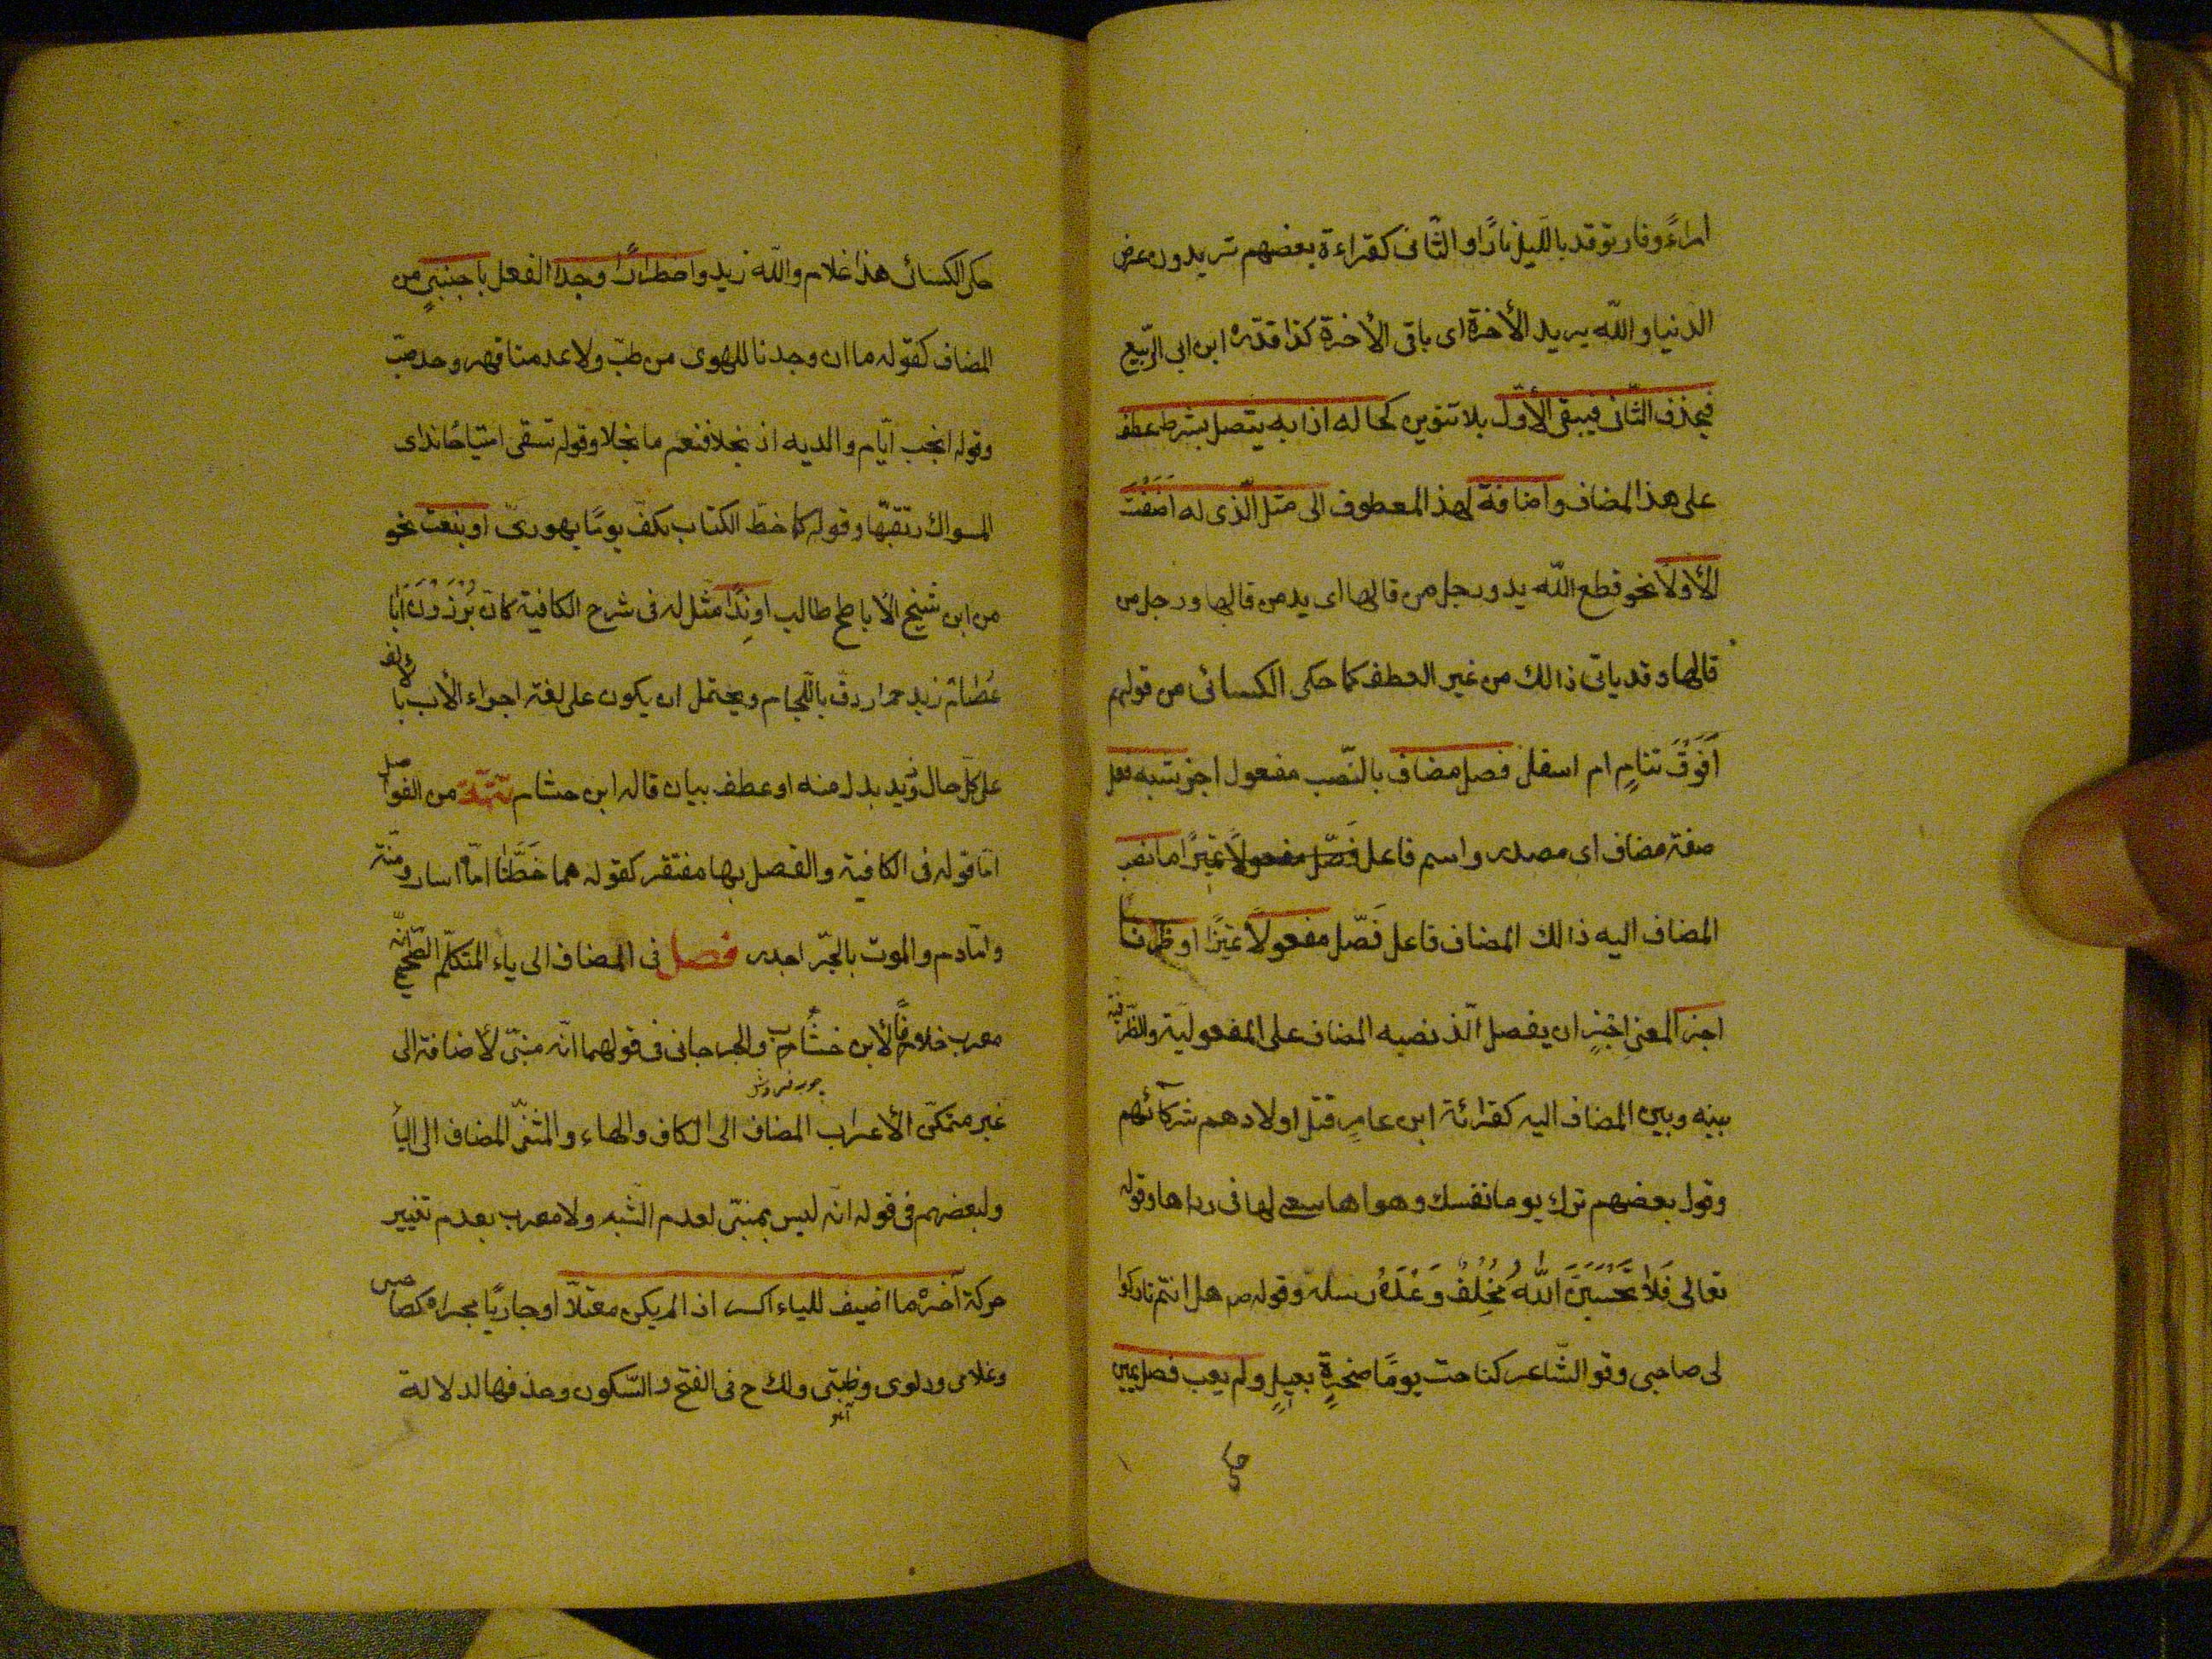 امراءً ونار توقد بالليل نارًا والثّانى كقراءة بعضهم تريدون عرض
الدنيا واللّه يريد الأخرة اى باقى الأخرة كذا قدّره ابن ابى الرّبيع
فيحذف الثّانى فيبقى الأوّل بلا تنوين كحاله اذا به يتصل بشرط عطف
على هذا المضاف واضافة لهذ المعطوف الى مثل الّذى له اَضَفْتَ
الأولا نحو قطع اللّه يد ورجل من قالها اى يد من قالها ورجل من
قالها وقد ياتى ذالك من غير العطف كما حكى الكسائى من قولهم
اَفَوْقَ تنامِ ام اسفل فصل مضاف بالنّصب مفعول اجز شبه فعل
صفة مضاف اى مصدر واسم فاعل فَصّل مفعولاً تميزًا ما نصب
المضاف اليه ذالك المضاف فاعل فَصّل مفعولاً تميزًا او ظرفاً
اجز المعنى اجزِ ان يفصل الّذ نصبه المضاف على المفعوليّة والظّرفيّة
بينه وبين المضاف اليه كقرائة ابن عامرٍ قتل اولادهم شركائهم
وقول بعضهم ترك يوما نفسك وهواها سعى لها فى رداها وقوله
تعالى فَلاٰ تَحْسَبَنَّ اللّٰهَ مُخْلِفُ وَعْدَهُ رسله وقوله ص هل انتم تاركوا
لى صاحبى وقو الشّاعر كناحت يومًا صخرةٍ بعيلٍ ولم يعب فصل يمين
حكى الكسائى هذا غلام واللّه زيد واضطرارًا وجدا الفعل باجنبىٍ من
المضاف كقوله ما ان وجدنا للهوى من طبّ ولا عدمنا قهر وجد صبّ
وقوله انجب ايّام والديه اذ نجلا فنعم ما نجلا وقوله تسقى امتياحًا ندى
المسواك ريقتها وقوله كما خطّ الكتاب بكفّ يومًا يهودىّ او بنعت نحو
من ابن شيخ الأباطح طالب او نِدًا مثّل له فى شرح الكافية كان بُرْذَوْنَ اَبا
عُصْام زيد حمار دقّ باللّجام ويحتمل ان يكون على لغة اجراء الأب بالألف
على كلّ حال وزيد بدل منه او عطف بيان قاله ابن هشام تتمّة من الفواصل
امّا قوله فى الكافية والفصل بها مفتقر كقوله هما خَطَّتٰا امّا اسار ومنّة
وامّا دم والموت بالحرّ اجدر فصل فى المضاف الى ياء المتكلّم الصّحيح انّه
معرب خلافًا لأبن خشّاب والجرجانى فى قولهما انّه مبنىّ لأضافته الى
چوب فروش
غير متمكّن الأعراب المضاف الى الكاف والهاء والمثنّى المضاف الى اليأ
ولبعضهم فى قوله انّه ليس بمبنىّ لعدم الشّبه ولا معرب بعدم تغيير
حركة آخره ما اضيف للياء اكسر اذ الم يكن معتلّا او جاريًا مجراه كصاحبى
وغلامى ودلوى وظبيى ولك ح فى الفتح والسّكون وحذفها لدلالة
آهو